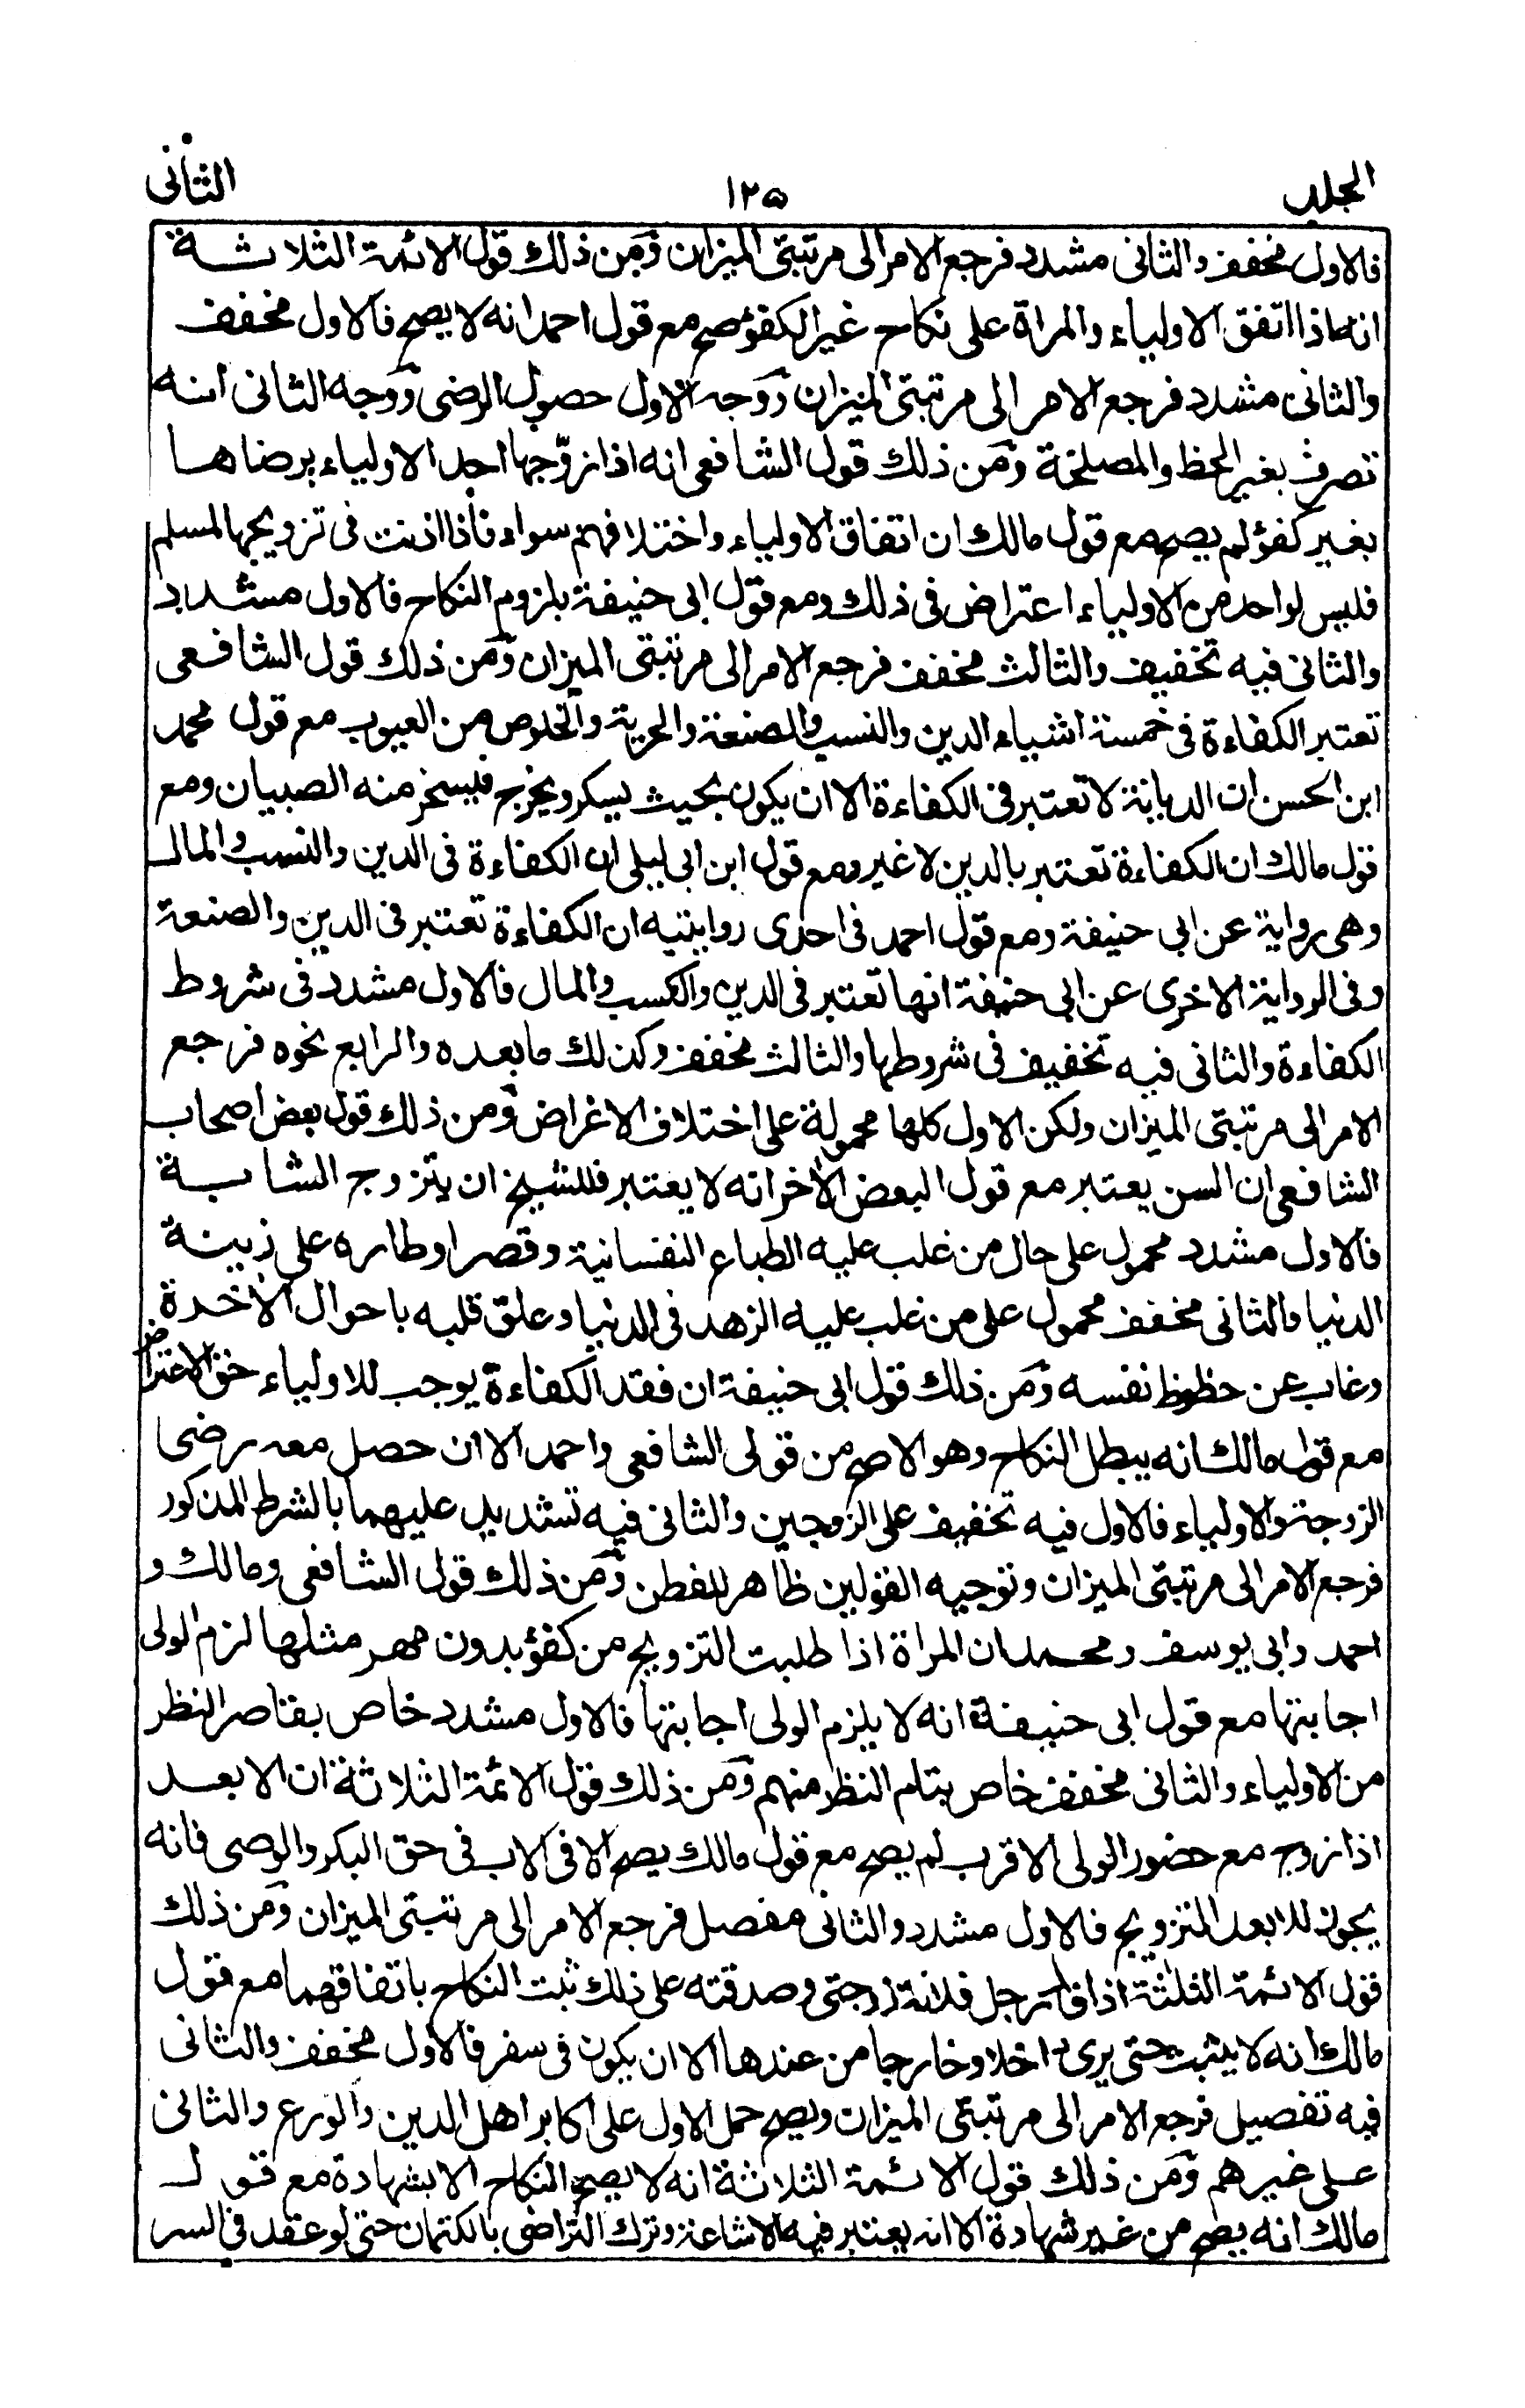 الجلد ١٢٥ الثانی
فالاول مخفف والثانی مشدد فرجع الامر الی مرتبتی المیزان ومن ذلك قول الائمة الثلاثة
انه اذا اتفق الاولیاء والمراة علی نكاح غیر الكفؤ صح مع قول احمد انه لا یصح فالاول مخفف
والثانی مشدد فرجع الامر الی مرتبتی المیزان ووجه الاول حصول الرضی ووجه الثانی انه
تصرف بغیر الحظ والمصلحة ومن ذلك قول الشافعی انه اذا زوّجها احد الاولیاء برضاها
بغیر كفؤ لم یصح مع قول مالك ان اتفاق الاولیاء واختلافهم سواء فاذا اذنت فی تزویجها لمسلم
فلیس لواحد من الاولیاء اعتراض فی ذلك ومع قول ابی حنیفة بلزوم النكاح فالاول مشدد
والثانی فیه تخفیف والثالث مخفف فرجع الامر الی مرتبتی المیزان ومن ذلك قول الشافعی
تعتبر الكفاءة فی خمسة اشیاء الدین والنسب والصنعة والحریة والخلوص من العیوب مع قول محمد
ابن الحسن ان الدیانة لا تعتبر فی الكفاءة الا ان یكون بحیث یسكر ویخرج فیسخر منه الصبیان ومع
قول مالك ان الكفاءة تعتبر بالدین لا غیر ومع قول ابن ابی لیلی ان الكفاءة فی الدین والنسب والمال
وهی روایة عن ابی حنیفة ومع قول احمد فی احدی روایتیه ان الكفاءة تعتبر فی الدین والصنعة
وفی الروایة الاخری عن ابی حنیفة انها تعتبر فی الدین والكسب والمال فالاول مشدد فی شروط
الكفاءة والثانی فیه تخفیف فی شروطها والثالث مخفف وكذلك ما بعده والرابع نحوه فرجع
الامر الی مرتبتی المیزان ولكن الاول كلها محمولة علی اختلاف الاغراض ومن ذلك قول بعض اصحاب
الشافعی ان السن یعتبر مع قول البعض الاخر انه لا یعتبر فللشیخ ان یتزوج الشابة
فالاول مشدد محمول علی حال من غلب علیه الطباع النفسانیة وقصر اوطاره علی زینة
الدنیا والثانی مخفف محمول علی من غلب علیه الزهد فی الدنیا وعلق قلبه باحوال الاخرة
وغاب عن حظوظ نفسه ومن ذلك قول ابی حنیفة ان فقد الكفاءة یوجب للاولیاء حق الاعتراض
مع قول مالك انه یبطل النكاح وهو الاصح من قولی الشافعی واحمد الا ان حصل معه رضی
الزوجة والاولیاء فالاول فیه تخفیف علی الزوجین والثانی فیه تشدید علیهما بالشرط المذكور
فرجع الامر الی مرتبتی المیزان وتوجیه القولین ظاهر للفطن ومن ذلك قول الشافعی ومالك و
احمد وابی یوسف ومحمد ان المراة اذا طلبت التزویج من كفؤ بدون مهر مثلها لزم الولی
اجابتها مع قول ابی حنیفة انه لا یلزم الولی اجابتها فالاول مشدد خاص بقاصر النظر
من الاولیاء والثانی مخفف خاص بتام النظر منهم ومن ذلك قول الائمة الثلاثة ان الابعد
اذا زوج مع حضور الولی الاقرب لم یصح مع قول مالك یصح الا فی الاب فی حق البكر والوصی فانه
یجوز للابعد التزویج فالاول مشدد والثانی مفصل فرجع الامر الی مرتبتی المیزان ومن ذلك
قول الائمة الثلثة اذا قال رجل فلانة زوجتی وصدقته علی ذلك ثبت النكاح باتفاقهما مع قول
مالك انه لا یثبت حتی یری داخلا وخارجا من عندها الا ان یكون فی سفر فالاول مخفف والثانی
فیه تفصیل فرجع الامر الی مرتبتی المیزان ویصح حمل الاول علی اكابر اهل الدین والورع والثانی
علی غیرهم ومن ذلك قول الائمة الثلاثة انه لا یصح النكاح الا بشهادة مع قول
مالك انه یصح من غیر شهادة الا انه یعتبر فیه الاشاعة وترك التراضی بالكتمان حتی لو عقد فی السر